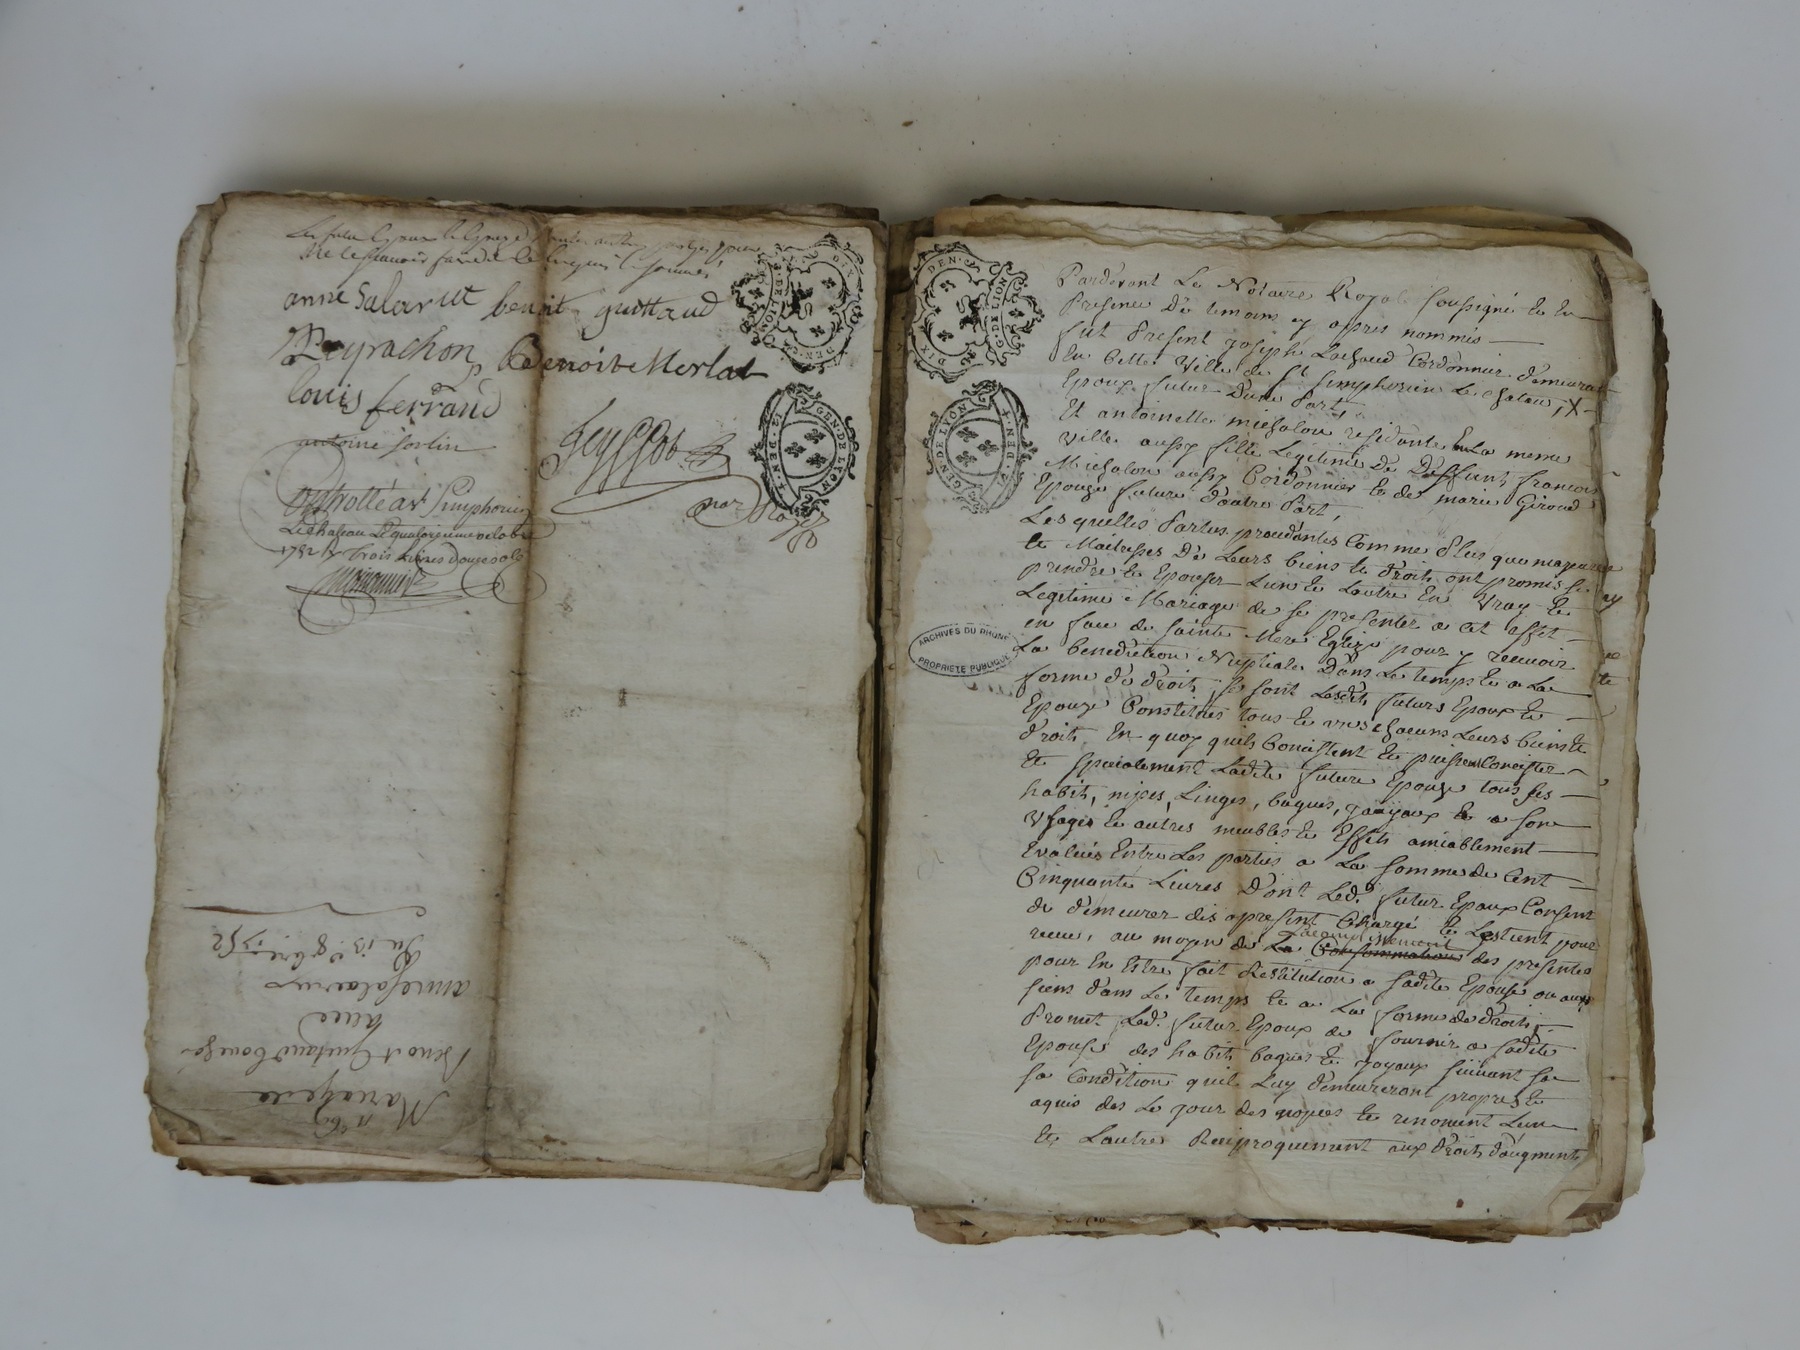 ne le sçavoir faire de ce
anne Salarut benoit guittaud
Peyrachon Benoit Merlat
louis ferraud
antoine Sorlin
nore Royal
Controllé a St Simphorien
Le Chateau Le quatorzieme octobre
1752 Trois Livres Douze sols
DIX DEN.
G.DE LION
GEN. DE LYON
4. DEN. 1
n° 69
Mariage de
Benoit Guitaud
avec
anne salarut
Du 13 8bre 1752
DIX DEN.
G.DE LION
GEN. DE LYON
4. DEN. 1
ARCHIVES DU RHONE
PROPRIETE PUBLIQUE
Pardevant Le Notaire Royal soussigné et en
Presence De temoins cy apres nommés
fut Present joseph Lachaud Cordonnier demeurant
En Cette Ville de St simphorien Le chateau, X
Epoux futur D'une Part,
Et antoinette michalon residante En La meme
Ville aussy fille Legitime De Deffunt francois
Michalon aussy Cordonnier et de marie Giroud
Epouze future d'autre Part,
Lesquelles Parties procedantes Comme Plus que majeures
et Maitresses De Leurs biens et droits, ont promis se
prendre et Epouser L'un et L'autre En Vray et
Legitime Mariage de se presenter a cet effet
en face de sainte Mere Eglize pour y recevoir
La benediction Nuptiale Dans Le temps et a La
forme de droit, se sont Lesdits futurs Epoux et
Epouze Constitués tous et uns chacuns Leurs biens et
droits En quoy quils Concistent et puissent Concister
et specialement Ladite future Epouze tous ses
habits, nipes, Linges, bagues, joayaux et a son
Usages et autres meubles et Effets amiablement
Evalués Entre Les parties a La somme de Cent
Cinquante Livres D'ont Led. futur Epoux Consent
de demeurer dés apresent Chargé et Les tient pour
receu, au moyen de L'accomplissement des presentes
pour En Estre fait Restitution a sadite Epouse ou aux
siens dans Le temps et a La forme de droit,
Promet Led. futur Epoux de fournir a sadite
Epouse des habits bagues et joyaux suivant sa
Condition quil Luy demeureront propres et
aquis des Le jour des nopces et renoncent L'un
et L'autre Reciproquement aux droits d'augment